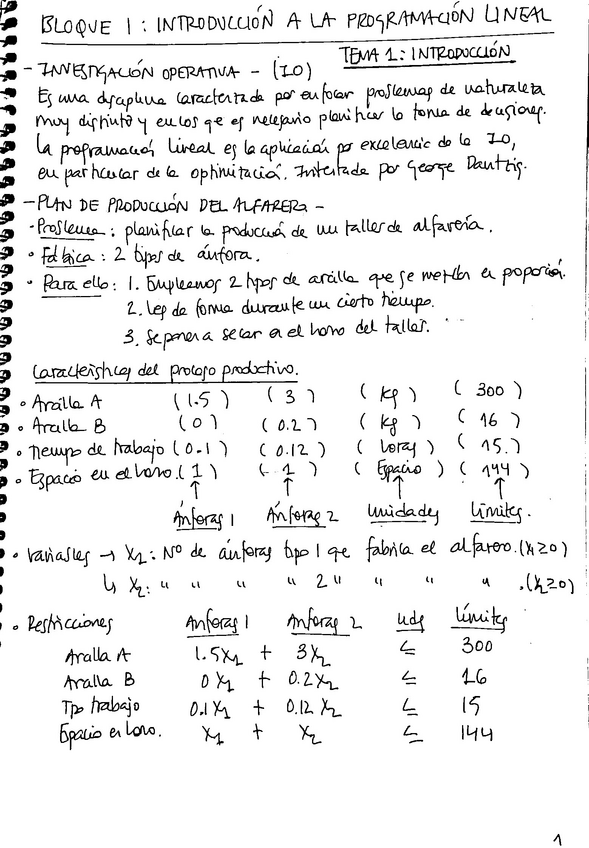 BLOQUE 1: INTRODUCCIÓN A LA PROGRAMACIÓN LINEAL
TEMA 1: INTRODUCCIÓN
- INVESTIGACIÓN OPERATIVA - (IO)
Es una disciplina caracterizada por enfocar problemas de naturaleza
muy distinta y en los que es necesario planificar la toma de decisiones.
La programación lineal es la aplicación por excelencia de la IO,
en particular de la optimización. Inventada por George Dantzig.
- PLAN DE PRODUCCIÓN DEL ALFARERO -
· Problema: planificar la producción de un taller de alfarería.
· Fábrica: 2 tipos de ánfora.
· Para ello: 1. Empleamos 2 tipos de arcilla que se mezclan en proporción.
2. Les da forma durante un cierto tiempo.
3. Se ponen a secar en el horno del taller.
Características del proceso productivo.
· Arcilla A (1.5) (3) (kg) (300)
· Arcilla B (0) (0.2) (kg) (16)
· Tiempo de trabajo (0.1) (0.12) (horas) (15.)
· Espacio en el horno. (1) (1) (Espacio) (144)
↑ ↑ ↑ ↑
Ánforas 1 Ánforas 2 Unidades Límites.
· Variables → X₁: Nº de ánforas tipo 1 que fabrica el alfarero. (X₁≥0)
↳ X₂: " " " " 2 " " " " . (X₂≥0)
· Restricciones Ánforas 1 Ánforas 2 uds Límites
Arcilla A 1.5X₁ + 3X₂ ≤ 300
Arcilla B 0X₁ + 0.2X₂ ≤ 16
Tpo trabajo 0.1X₁ + 0.12X₂ ≤ 15
Espacio en horno. X₁ + X₂ ≤ 144
1